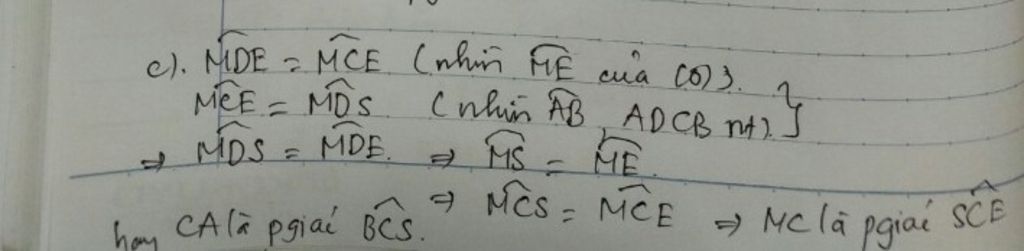 c). MDE = MCE (nhìn ME của (O)).
MCE = MDS (nhìn AB, ADCB nt). }
⇒ MDS = MDE. ⇒ MS = ME.
⇒ MCS = MCE ⇒ MC là pgiai SCE
hay CA là pgiai BCS.